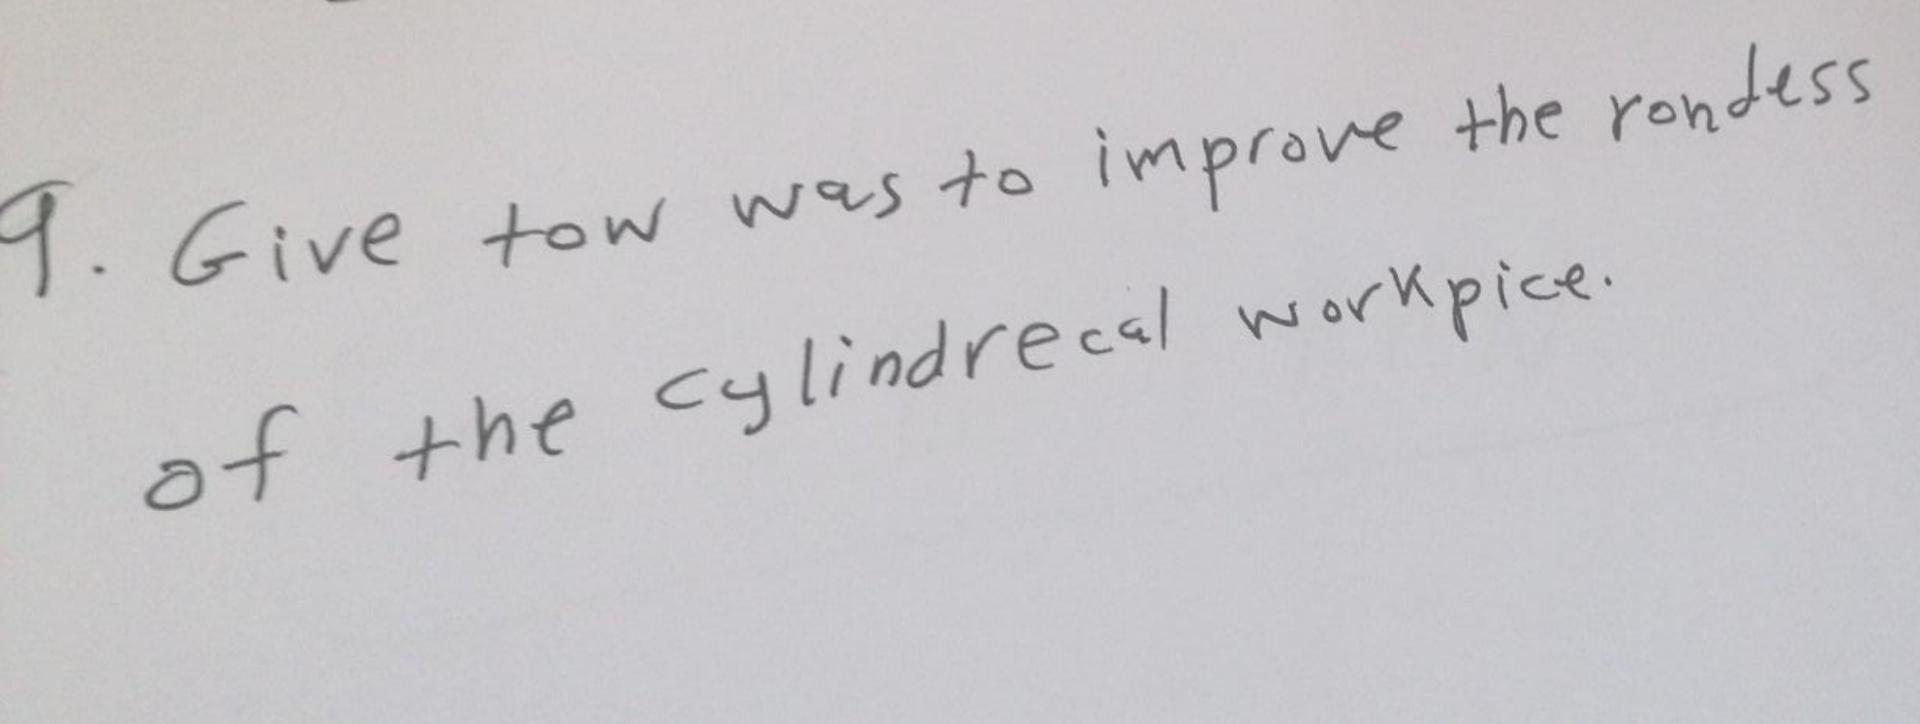 9. Give tow was to improve the rondess
of the cylindrecal workpice.